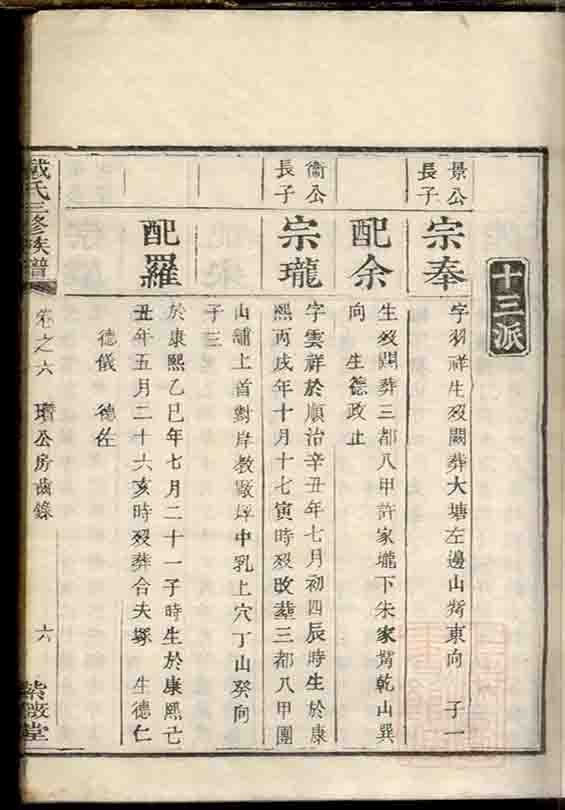 十三派
景公
長子
宗奉
字羽祥生歿闕葬大塘左邊山背東向 子一
配余
生歿闕葬三都八甲許家壠下朱家背乾山巽
向 生德政止
衞公
長子
宗瓏
字雲祥於順治辛丑年七月初四辰時生於康
熙丙戌年十月十七寅時歿改葬三都八甲團
山鋪上首對岸教廠坪中乳上穴丁山癸向
子三
配羅
於康熙乙巳年七月二十一子時生於康熙己
丑年五月二十六亥時歿葬合夫塚 生德仁
德儀 德佐
戴氏三修族譜
卷之六 瓚公房齒錄
六
紫薇堂